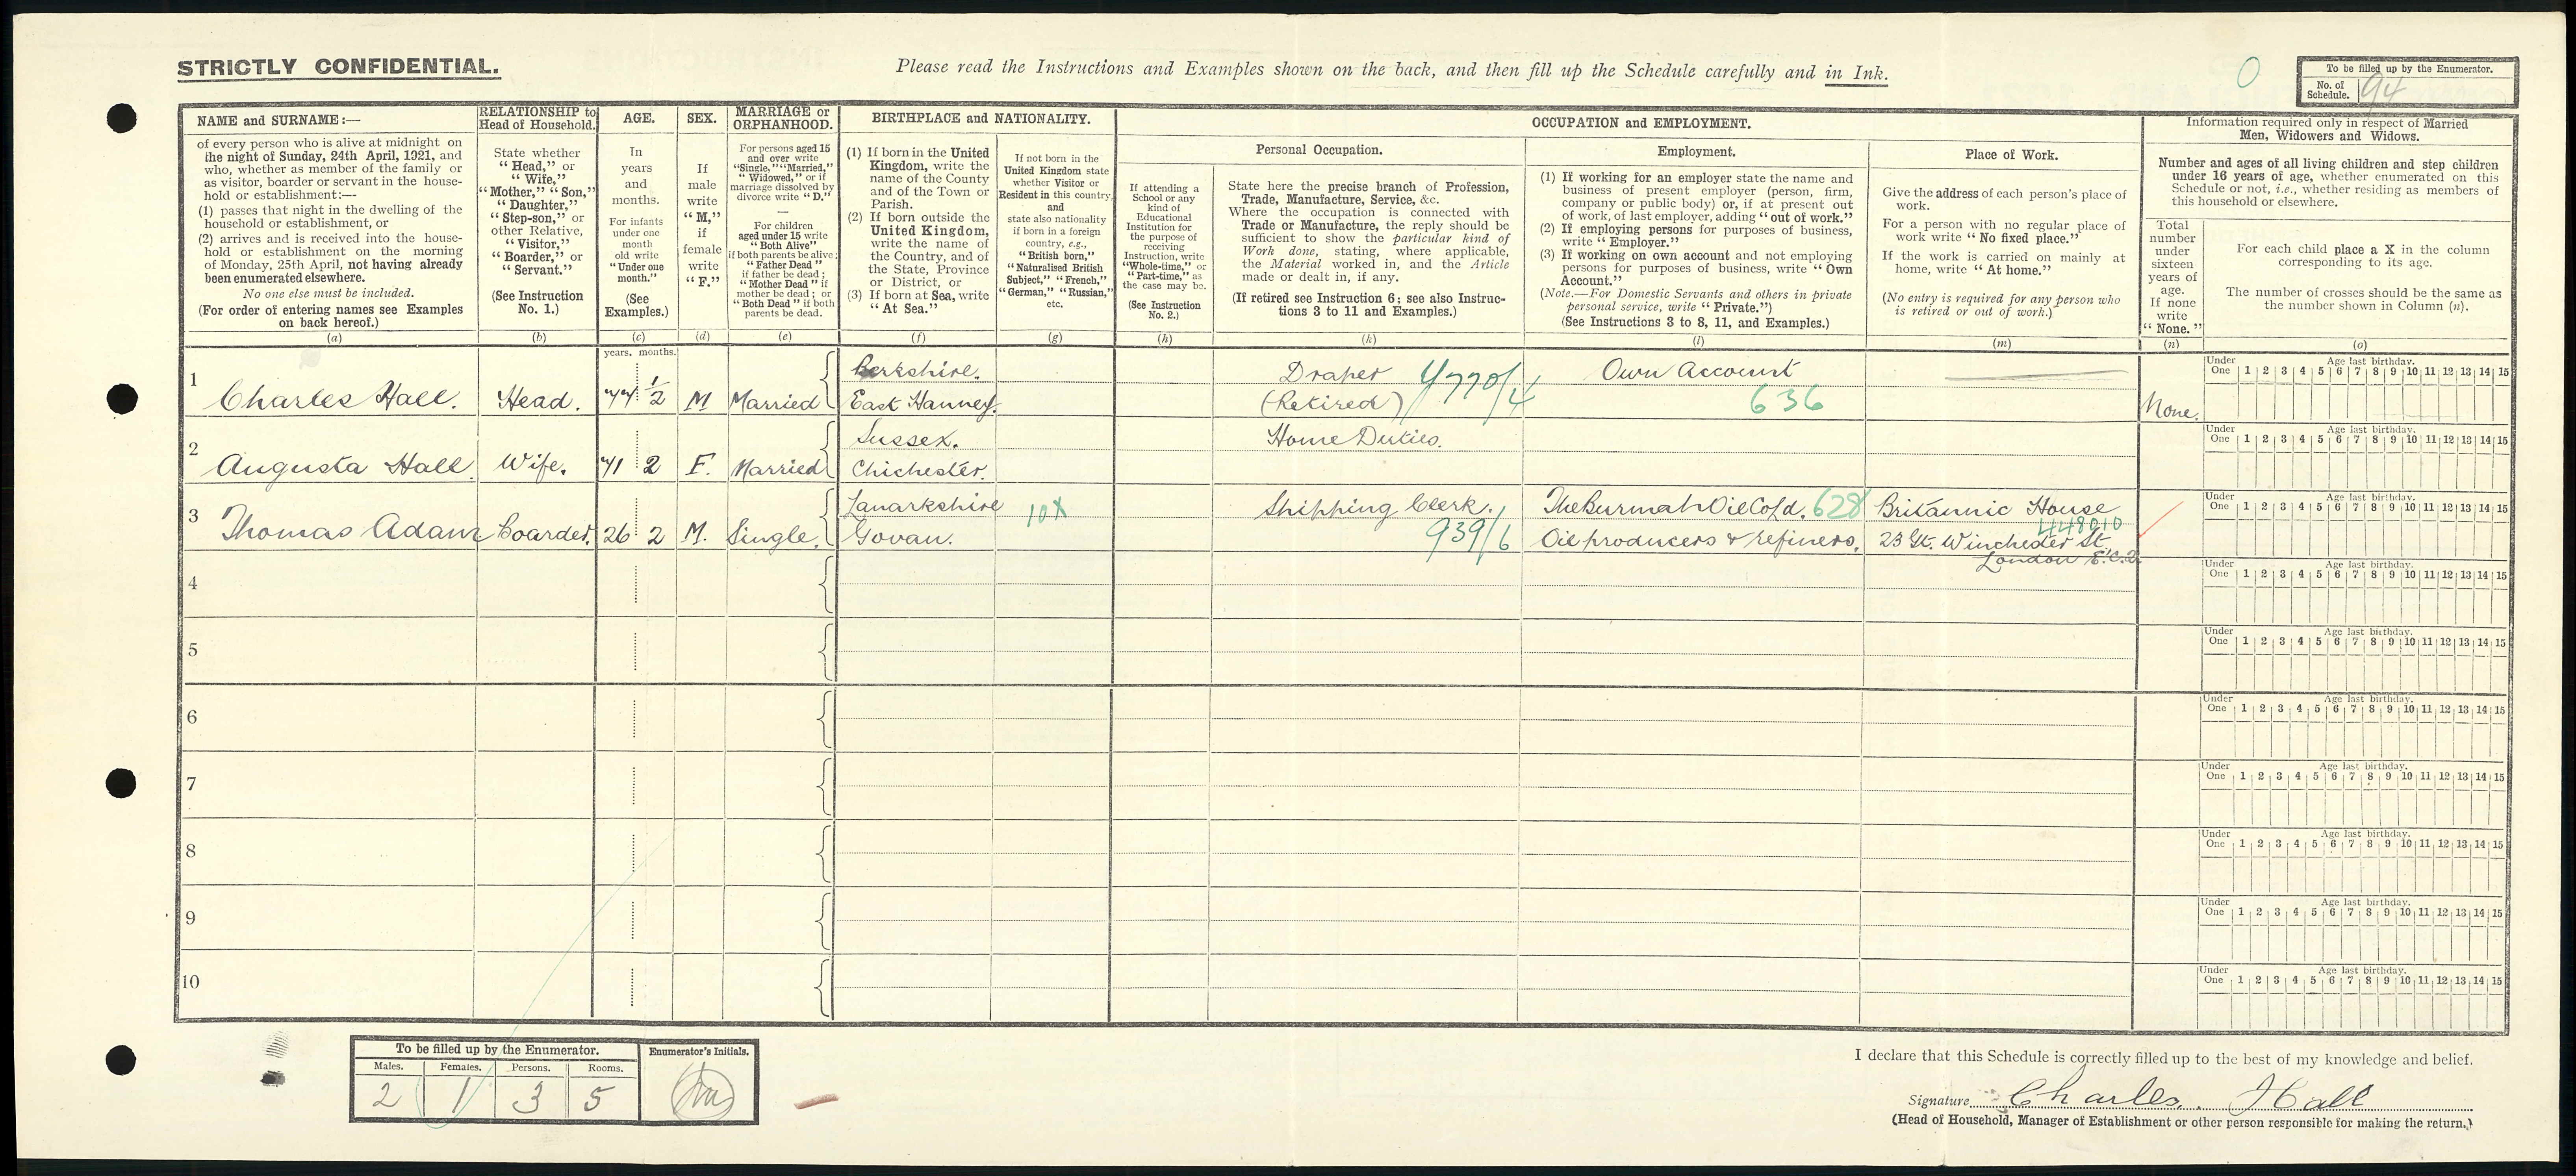 STRICTLY CONFIDENTIAL.
Please read the Instructions and Examples shown on the back, and then fill up the Schedule carefully and in Ink.
0
To be filled up by the Enumerator.
No. of Schedule. 94
NAME and SURNAME:—
of every person who is alive at midnight on
the night of Sunday, 24th April, 1921, and
who, whether as member of the family or
as visitor, boarder or servant in the house-
hold or establishment:—
(1) passes that night in the dwelling of the
household or establishment, or
(2) arrives and is received into the house-
hold or establishment on the morning
of Monday, 25th April, not having already
been enumerated elsewhere.
No one else must be included.
(For order of entering names see Examples
on back hereof.)
(a)
RELATIONSHIP to
Head of Household.
State whether
"Head," or
"Wife,"
"Mother," "Son,"
"Daughter,"
"Step-son," or
other Relative,
"Visitor,"
"Boarder," or
"Servant."
(See Instruction
No. 1.)
(b)
AGE.
In
years
and
months.
For infants
under one
month
old write
"Under one
month."
(See
Examples.)
(c)
SEX.
If
male
write
"M,"
if
female
write
"F."
(d)
MARRIAGE or
ORPHANHOOD.
For persons aged 15
and over write
"Single," "Married,"
"Widowed," or if
marriage dissolved by
divorce write "D."
—
For children
aged under 15 write
"Both Alive"
if both parents be alive;
"Father Dead"
if father be dead;
"Mother Dead" if
mother be dead; or
"Both Dead" if both
parents be dead.
(e)
BIRTHPLACE and NATIONALITY.
(1) If born in the United
Kingdom, write the
name of the County
and of the Town or
Parish.
(2) If born outside the
United Kingdom,
write the name of
the Country, and of
the State, Province
or District, or
(3) If born at Sea, write
"At Sea."
(f)
If not born in the
United Kingdom state
whether Visitor or
Resident in this country,
and
state also nationality
if born in a foreign
country, e.g.,
"British born,"
"Naturalised British
Subject," "French,"
"German," "Russian,"
etc.
(g)
OCCUPATION and EMPLOYMENT.
If attending a
School or any
kind of
Educational
Institution for
the purpose of
receiving
Instruction, write
"Whole-time," or
"Part-time," as
the case may be.
(See Instruction
No. 2.)
(h)
Personal Occupation.
State here the precise branch of Profession,
Trade, Manufacture, Service, &c.
Where the occupation is connected with
Trade or Manufacture, the reply should be
sufficient to show the particular kind of
Work done, stating, where applicable,
the Material worked in, and the Article
made or dealt in, if any.
(If retired see Instruction 6; see also Instruc-
tions 3 to 11 and Examples.)
(k)
Employment.
(1) If working for an employer state the name and
business of present employer (person, firm,
company or public body) or, if at present out
of work, of last employer, adding "out of work."
(2) If employing persons for purposes of business,
write "Employer."
(3) If working on own account and not employing
persons for purposes of business, write "Own
Account."
(Note.—For Domestic Servants and others in private
personal service, write "Private.")
(See Instructions 3 to 8, 11, and Examples.)
(l)
Place of Work.
Give the address of each person's place of
work.
For a person with no regular place of
work write "No fixed place."
If the work is carried on mainly at
home, write "At home."
(No entry is required for any person who
is retired or out of work.)
(m)
Information required only in respect of Married
Men, Widowers and Widows.
Number and ages of all living children and step children
under 16 years of age, whether enumerated on this
Schedule or not, i.e., whether residing as members of
this household or elsewhere.
Total
number
under
sixteen
years of
age.
If none
write
"None."
(n)
For each child place a X in the column
corresponding to its age.
The number of crosses should be the same as
the number shown in Column (n).
(o)
years. months.
1
Charles Hall. Head. 74 1/2 M Married
Berkshire.
East Hanney.
Draper
(Retired) 4770/4
Own Account
636
None.
Under One Age last birthday.
1 2 3 4 5 6 7 8 9 10 11 12 13 14 15
2
Augusta Hall. Wife. 71 2 F. Married
Sussex.
Chichester.
Home Duties.
Under One Age last birthday.
1 2 3 4 5 6 7 8 9 10 11 12 13 14 15
3
Thomas Adam Boarder. 26 2 M. Single.
Lanarkshire
Govan.
10X
Shipping Clerk.
939/6
The Burmah Oil Co Ld. 628
Oil producers & refiners.
Britannic House
448010
23 Gt. Winchester St.
London E.C.2
Under One Age last birthday.
1 2 3 4 5 6 7 8 9 10 11 12 13 14 15
4
Under One Age last birthday.
1 2 3 4 5 6 7 8 9 10 11 12 13 14 15
5
Under One Age last birthday.
1 2 3 4 5 6 7 8 9 10 11 12 13 14 15
6
Under One Age last birthday.
1 2 3 4 5 6 7 8 9 10 11 12 13 14 15
7
Under One Age last birthday.
1 2 3 4 5 6 7 8 9 10 11 12 13 14 15
8
Under One Age last birthday.
1 2 3 4 5 6 7 8 9 10 11 12 13 14 15
9
Under One Age last birthday.
1 2 3 4 5 6 7 8 9 10 11 12 13 14 15
10
Under One Age last birthday.
1 2 3 4 5 6 7 8 9 10 11 12 13 14 15
To be filled up by the Enumerator.
Males. Females. Persons. Rooms.
2 1 3 5
Enumerator's Initials.
I declare that this Schedule is correctly filled up to the best of my knowledge and belief.
Signature Charles Hall
(Head of Household, Manager of Establishment or other person responsible for making the return.)